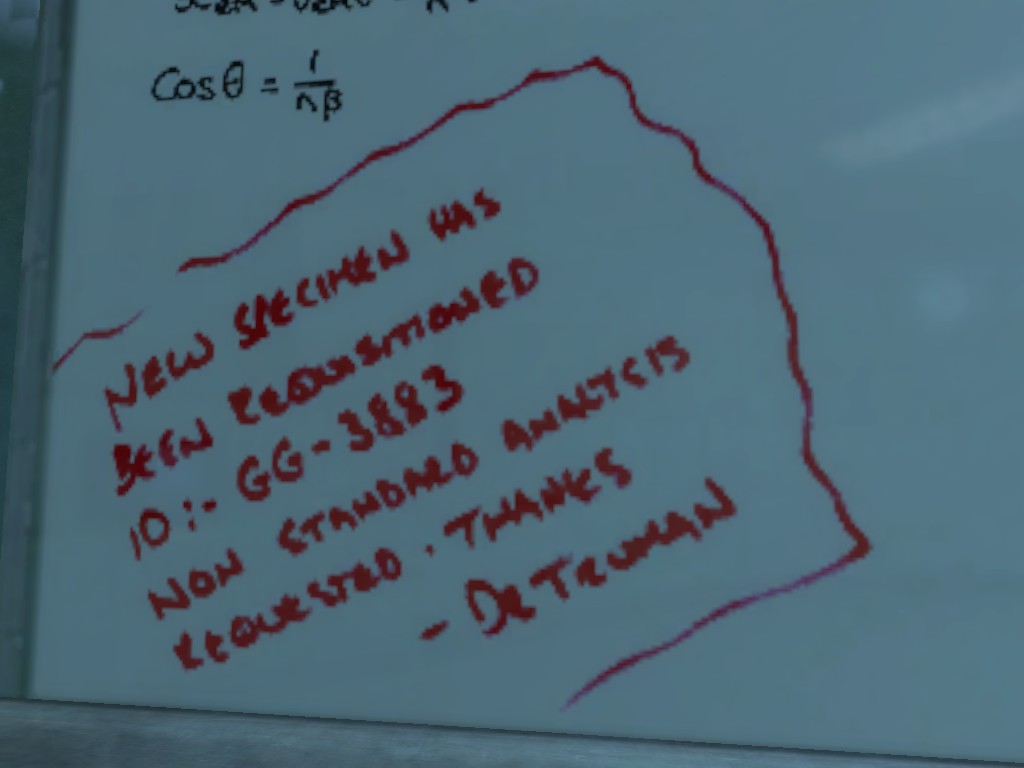 Cosθ = 1/nβ
NEW SPECIMEN HAS
BEEN REQUISITIONED
ID:- GG-3883
NON STANDARD ANALYSIS
REQUESTED. THANKS
- DR TRUMAN